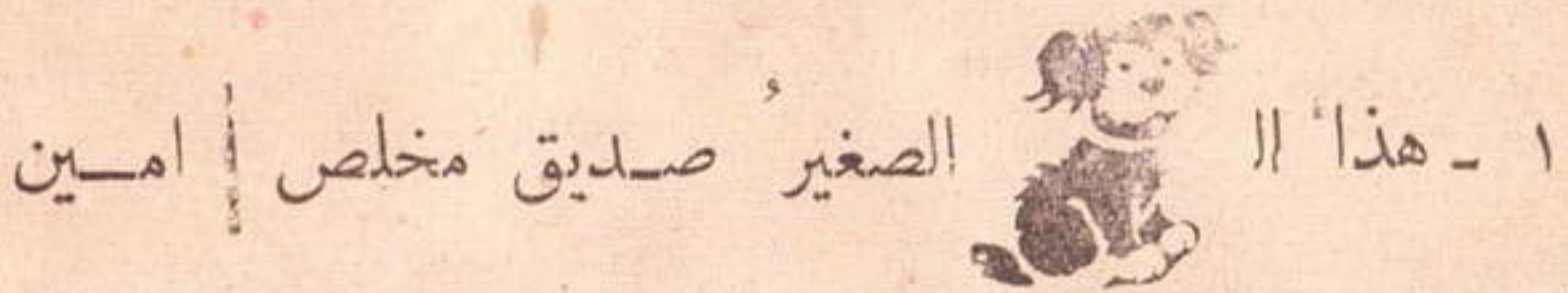 ١ - هذا ال الصغيرُ صديق مخلص امين